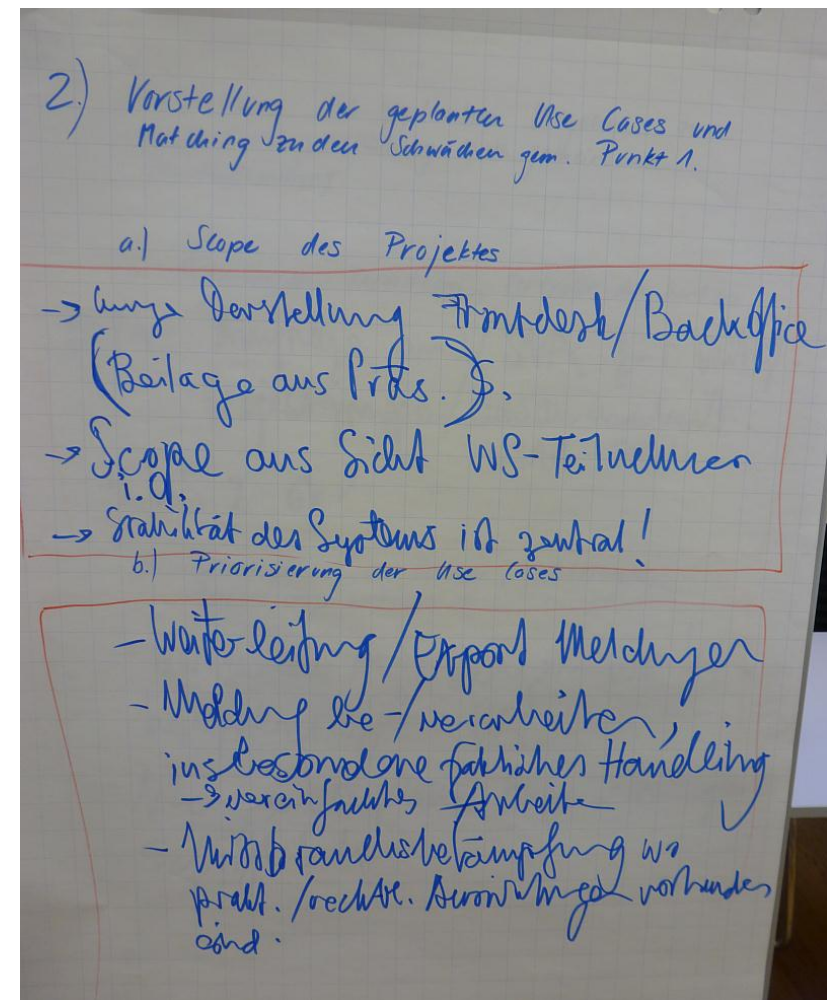 2.) Vorstellung der geplanten Use Cases und
Matching zu den Schwächen gem. Punkt 1.
a.) Scope des Projektes
→ Darstellung Frontdesk/Backoffice
(Beilage aus Präs.)
→ Scope aus Sicht WS-Teilnehmer
i.O.
→ Stabilität des Systems ist zentral!
b.) Priorisierung der Use Cases
- Weiterleitung/Export Meldungen
- Meldung be-/verarbeiten,
insbesondere Handling
→ vereinfachtes Arbeiten
- Missbrauchsbekämpfung wo
prakt./rechtl. Auswirkungen vorhanden
sind.